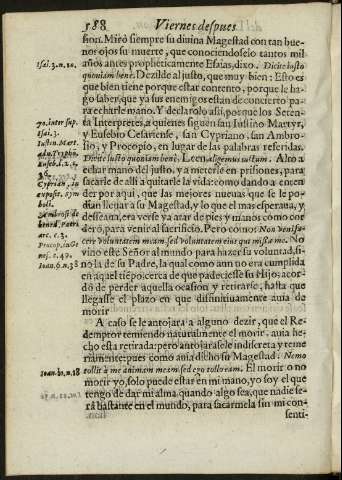 588 Viernes despues
sion. Mirò siempre su diuina Magestad con tan bue-
nos ojos su muerte, que conociendolo tantos mil
años antes propheticamente Esaias, dixo. Dicite iusto
quoniam benè. Dezilde al justo, que muy bien: Esto es
que bien tiene porque estar contento, porque le ha-
go saber, que ya sus enemigos estàn de concierto pa-
ra echarle mano. Y declarolo assi, porque los Seten-
ta Interpretes, a quienes siguen san Iustino Martyr,
y Eusebio Cesariense, san Cypriano, san Ambro-
sio, y Procopio, en lugar de las palabras referidas.
Dicite iusto quoniam benè, Leen, alligemus iustum. Alto a
echar mano del justo, ya meterle en prisiones, para
sacarle de alli a quitarle la vida: como dando a enten-
der por aqui, que las mejores nueuas que se le po-
dian lleuar a su Magestad, y lo que el mas esperaua, y
desseaua, era verse ya atar de pies y manos como cor
dero, para venir al sacrificio. Pero como: Non veni fa-
cere voluntatem meam sed voluntatem eius qui misit me. No
vino este Señor al mundo para hazer su voluntad, si-
nò la de su Padre, la qual como aun no era cumplida
en aquel tiẽpo, cerca de que padeciesse su Hijo: acor-
dò de perder aquella ocasion y retirarse, hasta que
llegasse el plazo en que difinitiuamente auia de
morir
A caso se le antojarà a alguno dezir, que el Re-
demptor temiendo naturalmente el morir, auia he-
cho esta retirada: pero antojarasele indiscreta y teme
rariamente: pues como auia dicho su Magestad. Nemo
tollit à me animam meam, sed ego tollo eam. El morir o no
morir yo, solo puede estar en mi mano, yo soy el que
tengo de dar mi alma quando algo sea, que nadie se-
rà bastante en el mundo, para sacarmela sin mi con-
senti-
Isai. 3. n. 10.
70. inter sup.
Isai. 3.
Iustin. Mart.
Euseb. l. 2. c.
Cyprian, in
exposit. sym
boli.
Ambrosi. de
bened. Patri
arc. c. 3.
Procop. in Ge
nes. c. 49.
Ioan. 6. n. 38
Ioan. 10. n. 18